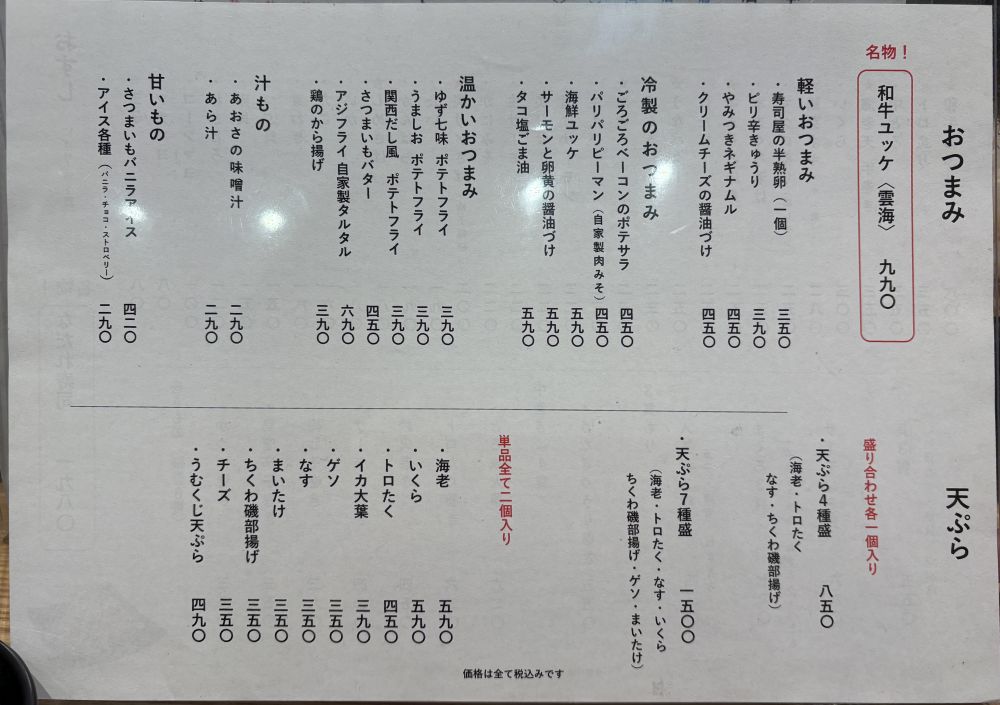 おつまみ
名物！
和牛ユッケ〈雲海〉 九九〇
軽いおつまみ
・寿司屋の半熟卵（一個） 三五〇
・ピリ辛きゅうり 三九〇
・やみつきネギナムル 四五〇
・クリームチーズの醤油づけ 四五〇
冷製のおつまみ
・ごろごろベーコンのポテサラ 四五〇
・パリパリピーマン（自家製肉みそ） 四五〇
・海鮮ユッケ 五九〇
・サーモンと卵黄の醤油づけ 五九〇
・タコ塩ごま油 五九〇
温かいおつまみ
・ゆず七味 ポテトフライ 三九〇
・うましお ポテトフライ 三九〇
・関西だし風 ポテトフライ 三九〇
・さつまいもバター 四五〇
・アジフライ自家製タルタル 六九〇
・鶏のから揚げ 三九〇
汁もの
・あおさの味噌汁 二九〇
・あら汁 二九〇
甘いもの
・さつまいもバニラアイス 四二〇
・アイス各種（バニラ・チョコ・ストロベリー） 二九〇
天ぷら
盛り合わせ各一個入り
・天ぷら4種盛 八五〇
（海老・トロたく
なす・ちくわ磯部揚げ）
・天ぷら7種盛 一五〇〇
（海老・トロたく・なす・いくら
ちくわ磯部揚げ・ゲソ・まいたけ）
単品全て二個入り
・海老 五九〇
・いくら 五九〇
・トロたく 四五〇
・イカ大葉 三九〇
・ゲソ 三五〇
・なす 三五〇
・まいたけ 三五〇
・ちくわ磯部揚げ 三五〇
・チーズ 三五〇
・うむくじ天ぷら 四九〇
価格は全て税込みです